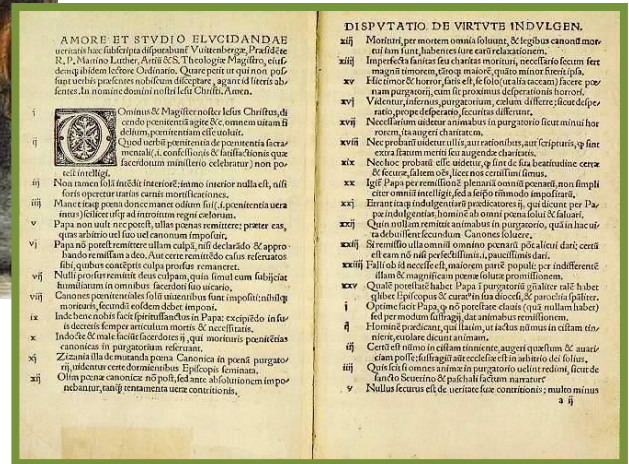 AMORE ET STVDIO ELVCIDANDAE
ueritatis hæc subscripta disputabunt Vuittenbergæ, Præsidēte
R. P. Martino Luther, Artiū & S. Theologiæ Magistro, eius/
demq; ibidem lectore Ordinario. Quare petit ut qui non pos/
sunt uerbis præsentes nobiscum disceptare, agant id literis ab/
sentes. In nomine domini nostri Iesu Christi. Amen.
i Ominus & Magister noster Iesus Christus, di
cendo pœnitentiā agite &c, omnem uitam fi
delium, pœnitentiam esse uoluit.
ij Quod uerbū pœnitentia de pœnitentia sacra/
mentali (.i. confessionis & satisfactionis quæ
sacerdotum ministerio celebratur) non po/
test intelligi.
iij Non tamen solā intēdit interiorē; immo interior nulla est, nisi
foris operetur uarias carnis mortificationes.
iiij Manet itaq; pœna donec manet odium sui (.i. pœnitentia uera
intus) scilicet usq; ad introitum regni cælorum.
v Papa non uult nec potest, ullas pœnas remittere; præter eas,
quas arbitrio uel suo uel canonum imposuit.
vj Papa nō potest remittere ullam culpā, nisi declarādo & appro/
bando remissam a deo. Aut certe remittēdo casus reseruatos
sibi, quibus contēptis culpa prorsus remaneret.
vij Nulli prorsus remittit deus culpam, quin simul eum subijciat
humiliatum in omnibus sacerdoti suo uicario.
viij Canones pœnitentiales solū uiuentibus sunt impositi; nihilq;
morituris, secundū eosdem debet imponi.
ix Inde bene nobis facit spiritussanctus in Papa; excipiēdo in su/
is decretis semper articulum mortis & necessitatis.
x Indocte & male faciūt sacerdotes ij, qui morituris pœnitētias
canonicas in purgatorium reseruant.
xj Zizania illa de mutanda pœna Canonica in pœnā purgato/
rij, uidentur certe dormientibus Episcopis seminata.
xij Olim pœnæ canonicæ nō post, sed ante absolutionem impo/
nebantur, tanq̄ tentamenta ueræ contritionis.
DISPVTATIO DE VIRTVTE INDVLGEN.
xiij Morituri, per mortem omnia soluunt, & legibus canonū mor/
tui iam sunt, habentes iure earū relaxationem.
xiiij Imperfecta sanitas seu charitas morituri, necessario secum fert
magnū timorem, tātoq; maiorē, quāto minor fuerit ipsa.
xv Hic timor & horror, satis est, se solo (ut alia taceam) facere pœ/
nam purgatorij, cum sit proximus desperationis horrori.
xvj Videntur, infernus, purgatorium, cælum differre; sicut despe/
ratio, prope desperatio, securitas differunt.
xvij Necessarium uidetur animabus in purgatorio sicut minui hor
rorem, ita augeri charitatem.
xviij Nec probatū uidetur ullis, aut rationibus, aut scripturis, q̄ sint
extra statum meriti seu augendæ charitatis.
xix Nec hoc probatū esse uidetur, q̄ sint de sua beatitudine certæ
& securæ, saltem oēs, licet nos certissimi simus.
xx Igit̄ Papa per remissionē plenariā omniū pœnarū, non simpli
citer omniū intelligit, sed a seipso tātūmodo impositarū.
xxj Errant itaq; indulgentiarū prædicatores ij, qui dicunt per Pa/
pæ indulgentias, hominē ab omni pœna solui & saluari.
xxij Quin nullam remittit animabus in purgatorio, quā in hac ui/
ta debuissent secundum Canones soluere.
xxiij Si remissio ulla omniū omnino pœnarū pōt alicui dari; certū
est eam nō nisi perfectissimis .i. paucissimis dari.
xxiiij Falli ob id necesse est, maiorem partē populi; per indifferentē
illam & magnificam pœnæ solutæ promissionem.
xxv Qualē potestatē habet Papa ī purgatoriū gñaliter talē habet
q̄libet Episcopus & curat⁹ in sua diocesi, & parochia sp̄aliter.
j Optime facit Papa, q̄ nō potestate clauis (quā nullam habet)
sed per modum suffragij, dat animabus remissionem.
ij Hominē prædicant, qui statim, ut iactus nūmus in cistam tin/
nierit, euolare dicunt animam.
iij Certū est nūmo in cistam tinniente, augeri quæstum & auari/
ciam posse; suffragiū aūt ecclesiæ est in arbitrio dei solius.
iiij Quis scit si omnes animæ in purgatorio uelint redimi, sicut de
sancto Seuerino & paschali factum narratur.
v Nullus securus est de ueritate suæ contritionis; multo minus
a ij